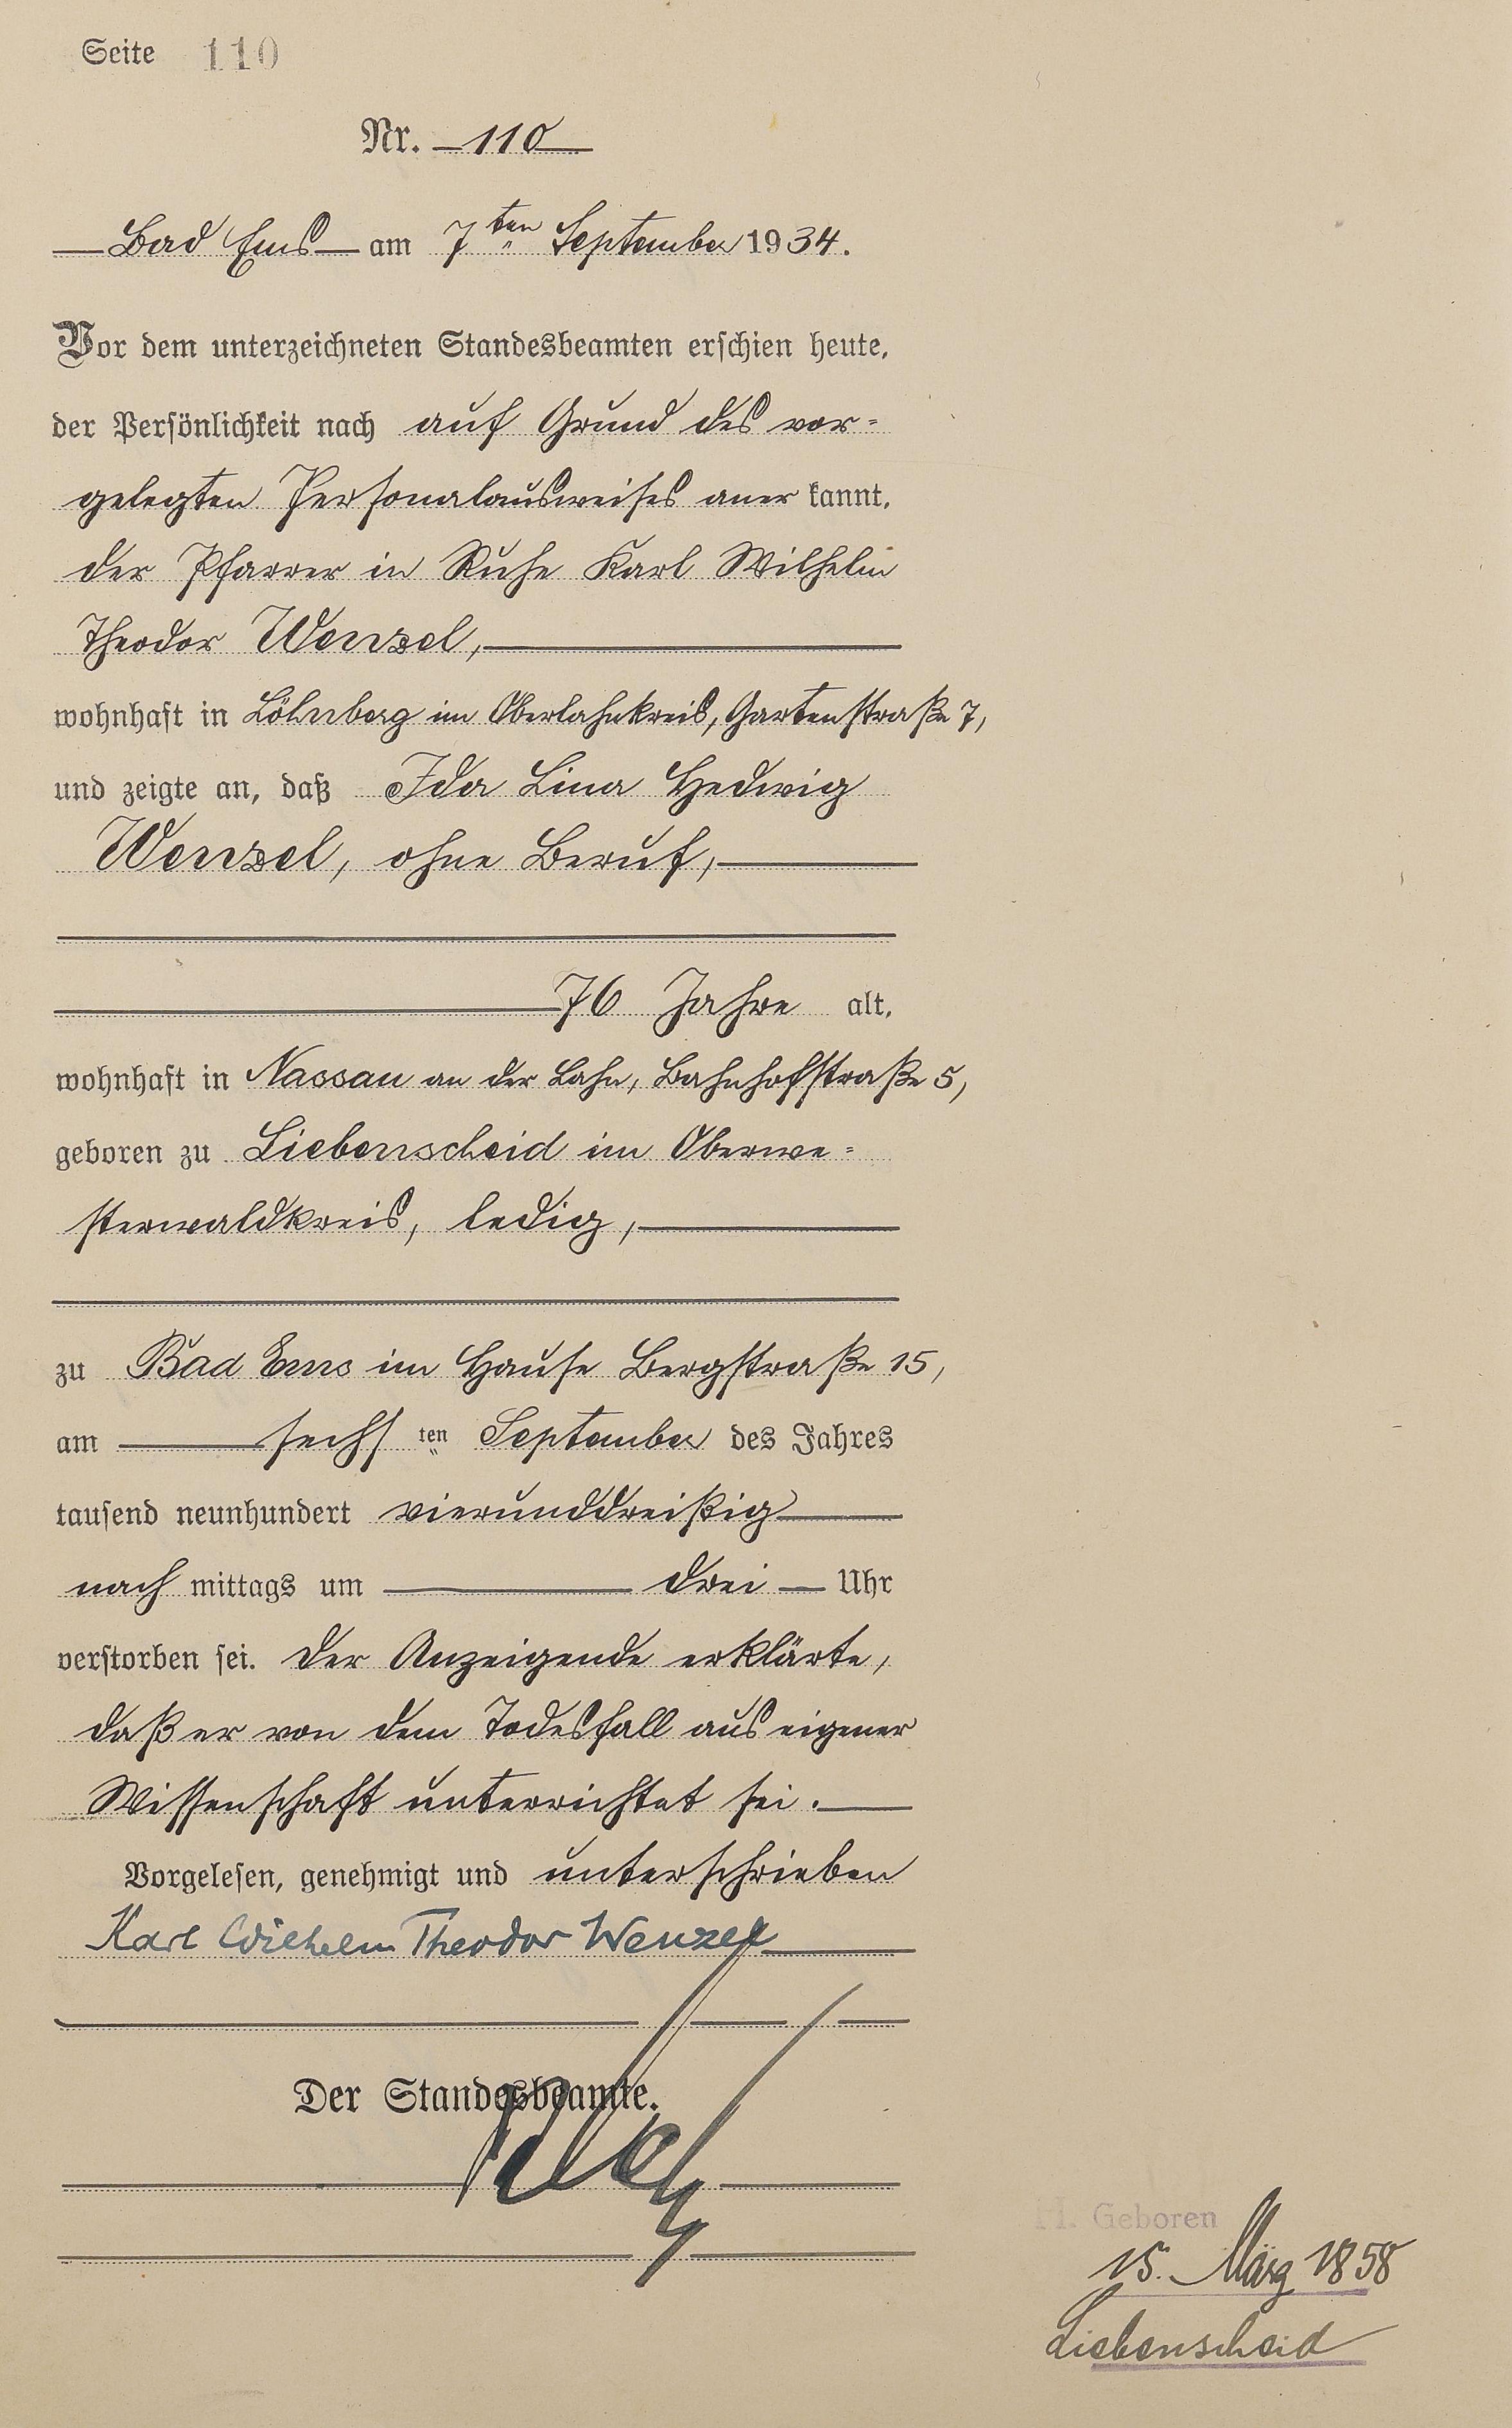 Seite 110
Nr. 110
Bad Ems am 7ten September 1934.
Vor dem unterzeichneten Standesbeamten erschien heute,
der Persönlichkeit nach auf Grund des vor=
gelegten Personalausweises aner kannt,
der Pfarrer in Ruhe Karl Wilhelm
Theodor Wenzel,
wohnhaft in Löhnberg im Oberlahnkreis, Gartenstraße 7,
und zeigte an, daß Ida Lina Hedwig
Wenzel, ohne Beruf,
76 Jahre alt,
wohnhaft in Nassau an der Lahn, Bahnhofstraße 5,
geboren zu Liebenscheid im Oberwe=
sterwaldkreis, ledig,
zu Bad Ems im Hause Bergstraße 15,
am sechsten September des Jahres
tausend neunhundert vierunddreißig
nach mittags um drei Uhr
verstorben sei. Der Anzeigende erklärte,
daß er von dem Todesfall aus eigener
Wissenschaft unterrichtet sei.
Vorgelesen, genehmigt und unterschrieben
Karl Wilhelm Theodor Wenzel
Der Standesbeamte.
H. Geboren
15. März 1858
Liebenscheid